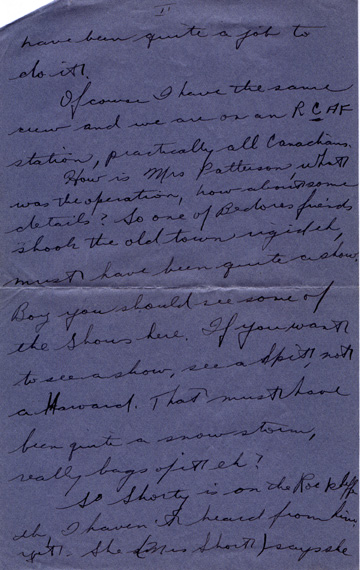 II
have been quite a job to
do it.
Of course I have the same
crew and we are on an RCAF
station, practically all Canadians.
How is Mrs Patterson, what
was the operation, how about some
details? So one of Bedores friends
shook the old town rigid eh,
must have been quite a show.
Boy you should see some of
the shows here. If you want
to see a show, see a Spit, not
a Harvard. That must have
been quite a snow storm,
really bags of it eh?
So Shorty is on the Rockcliffe
eh, I haven't heard from him
yet. She (Mrs Short) says she